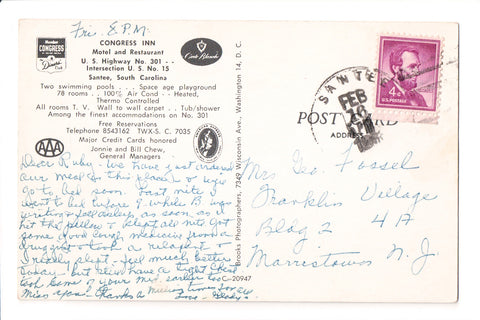 Fri. E.P.M.
CONGRESS INN
Motel and Restaurant
U. S. Highway No. 301 - -
Intersection U. S. No. 15
Santee, South Carolina
Two swimming pools . . . Space age playground
78 rooms . . 100% Air Cond - - Heated,
Thermo Controlled
All rooms T. V. Wall to wall carpet . Tub/shower
Among the finest accommodations on No. 301
Free Reservations
Telephone 8543162 TWX-S. C. 7035
Major Credit Cards honored
Jonnie and Bill Chew,
General Managers
Member
CONGRESS
AAA
Dear Ruby - We have just
our meal in this place &
go to bed soon. Last nite I
went to bed before 9 while B. was
& fell asleep as soon as I
hit the pillow & slept all nite. Got
some good cough medicine from a
druggist & took a &
really slept - feel much better
today - but still have a tight chest
took some of your
Miss you! Thanks a million times for
Love - Gladys
C-20947
Brooks Photographers, 7349 Wisconsin Ave., Washington 14, D. C.
SANTEE
FEB
POST CARD
ADDRESS
4¢
U.S. POSTAGE
Mrs Geo Fossel
Franklin Village
Bldg 2 4A
Morristown N. J.